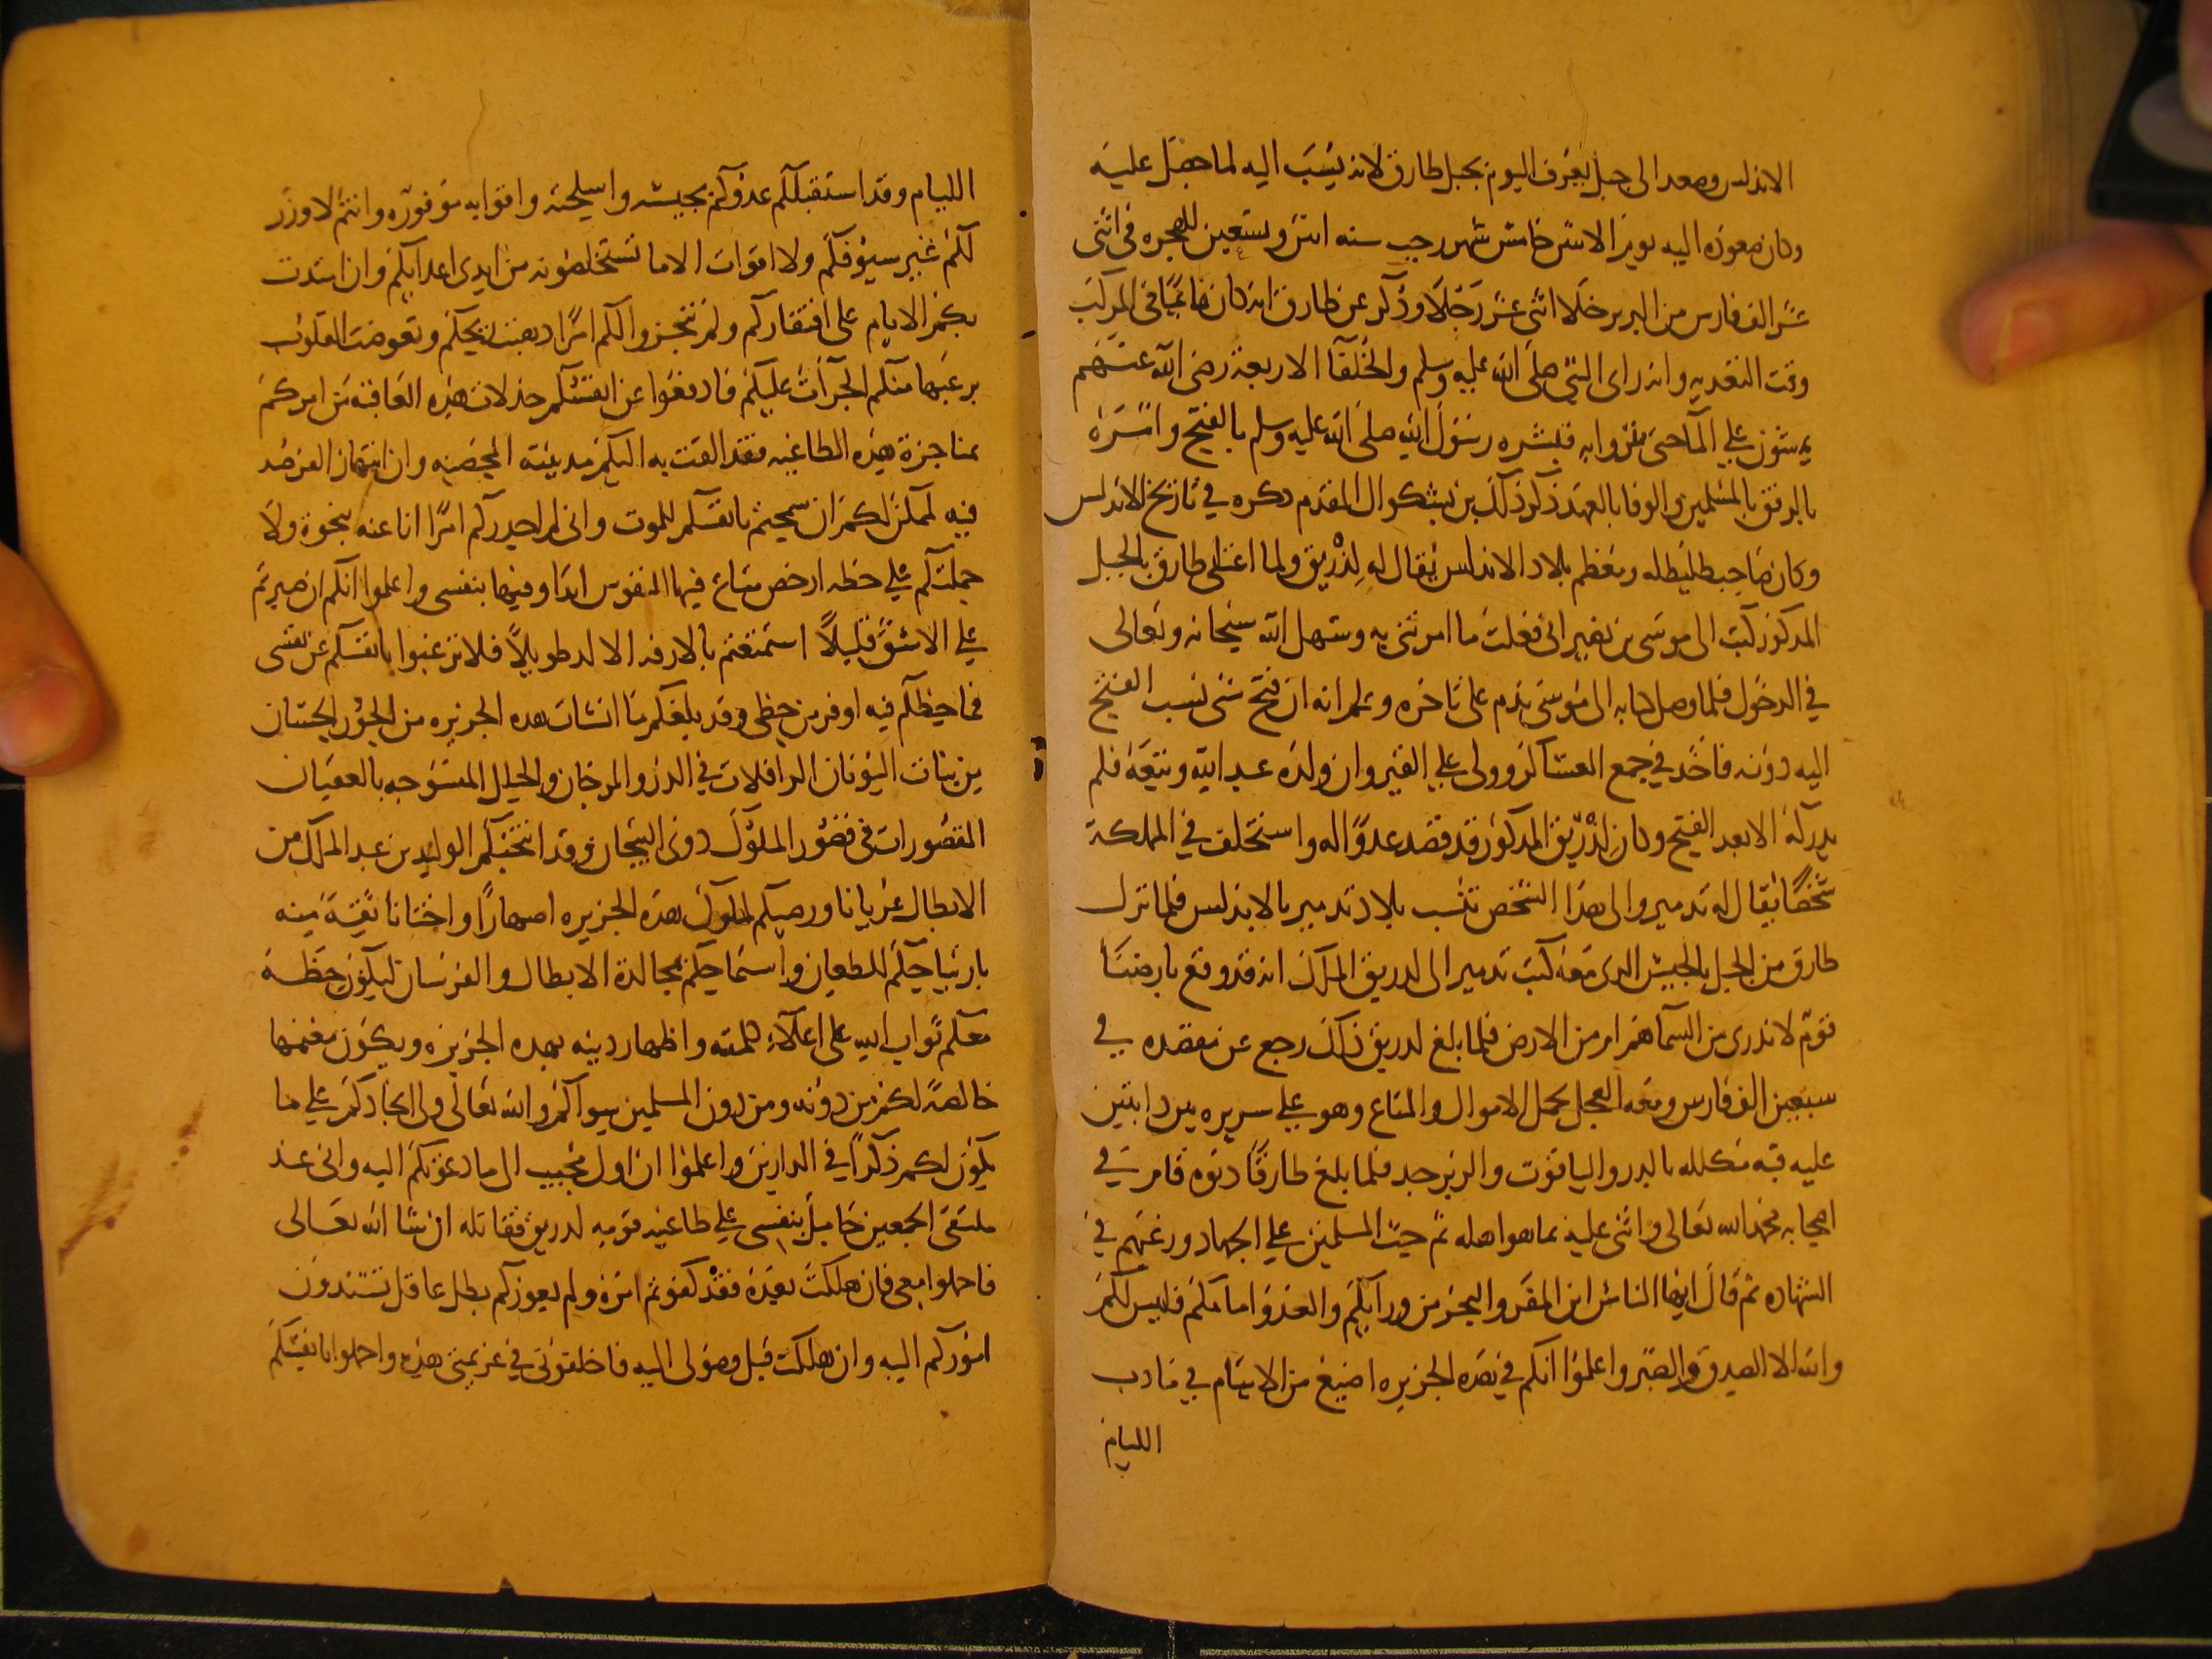 الاندلس وصعد الى جبل يعرف اليوم بجبل طارق لانه نسب اليه لما حصل عليه
وكان صعوده اليه يوم الاثنين خامس شهر رجب سنه اثنين وتسعين للهجره في اثنى
عشر الف فارس من البربر خلا اثنى عشر رجلا وذكر عن طارق انه كان نائما في المركب
وقت التعديه وانه راى النبي صلى الله عليه وسلم والخلفا الاربعة رضى الله عنهم
يمشون على المآ حتى مروا به فبشره رسول الله صلى الله عليه وسلم بالفتح وامره
بالرفق بالمسلمين والوفا بالعهد ذكر ذلك بن بشكوال المقدم ذكره في تاريخ الاندلس
وكان صاحب طليطله ومعظم بلاد الاندلس يقال له لذريق ولما اعتلى طارق بالجبل
المذكور كتب الى موسى بن نصير انى فعلت ما امرتنى به وسهل الله سبحانه وتعالى
في الدخول فلما وصل كتابه الى موسى ندم على تاخره وعلم انه ان فتح شى نسب الفتح
اليه دونه فاخذ في جمع العساكر وولى على القيروان ولده عبد الله وتبعه فلم
يدركه الا بعد الفتح وكان لذريق المذكور قد قصد عدوا له واستخلف في المملكة
شخصا يقال له تدمير والى هذا الشخص تنسب بلاد تدمير بالاندلس فلما نزل
طارق من الجبل بالجيش الذى معه كتب تدمير الى لدريق الملك انه قد وقع بارضنا
قوم لا ندرى من السمآ هم ام من الارض فلما بلغ لدريق ذلك رجع عن مقصده في
سبعين الف فارس ومعه العجل يحمل الاموال والمتاع وهو على سريره بين دابتين
عليه قبه مكلله بالدر والياقوت والزبرجد فلما بلغ طارقا دنوه قام في
اصحابه فحمد الله تعالى واثنى عليه بما هو اهله ثم حث المسلمين على الجهاد ورغبهم في
الشهاده ثم قال ايها الناس اين المفر والبحر من ورآيكم والعدو امامكم فليس لكم
والله الا الصدق والصبر واعلموا انكم في هذه الجزيره اضيع من الايتام في مادب
الليام
الليام وقد استقبلكم عدوكم بجيشه واسلحته واقواته موفوره وانتم لا وزر
لكم غير سيوفكم ولا اقوات الا ما تستخلصونه من ايدى اعدآيكم وان امتدت
بكم الايام على افتقاركم ولم تنجزوا لكم امرا ذهبت ريحكم وتعوضت القلوب
برعبها منكم الجرآت عليكم فادفعوا عن انفسكم خذلان هذه العاقبة من امركم
بمناجزة هذه الطاغيه فقد القت به اليكم مدينته المحصنه وان انتهاز الفرصه
فيه لممكن لكم ان سمحتم بانفسكم للموت وانى لم احذركم امرا انا عنه بنجوة ولا
حملتكم على خطه ارخص متاع فيها النفوس ابدا وفيها بنفسى واعلموا انكم ان صبرتم
على الاشق قليلا استمتعتم بالارفه الالد طويلا فلا ترغبوا بانفسكم عن نفسى
فما حظكم فيه اوفر من حظى وقد بلغكم ما انشات هذه الجزيره من الحور الحسان
من بنات اليونان الرافلات في الدر والمرجان والحلل المنسوجه بالعقيان
المقصورات في قصور الملوك ذوى التيجان وقد انتخبكم الوليد بن عبد الملك من
الابطال عربانا ورضيكم لملوك هذه الجزيره اصهارا واختانا ثقة منه
بارتياحكم للطعان واستماحكم بمجالدة الابطال والفرسان ليكون حظه
معكم ثواب الله على اعلآء كلمته واظهار دينه بهذه الجزيره ويكون مغنمها
خالصة لكم من دونه ومن دون المسلمين سواكم والله تعالى ولى انجادكم على ما
يكون لكم ذكرا في الدارين واعلموا ان اول مجيب الى ما دعوتكم اليه وانى عند
ملتقى الجمعين حامل بنفسى على طاغية قومه لدريق فقاتله ان شا الله تعالى
فاحملوا معى فان هلكت بعده فقد كفوتم امره ولم يعوزكم بطل عاقل تسندون
اموركم اليه وان هلكت قبل وصولى اليه فاخلفونى في عزيمتى هذه واحملوا بانفسكم